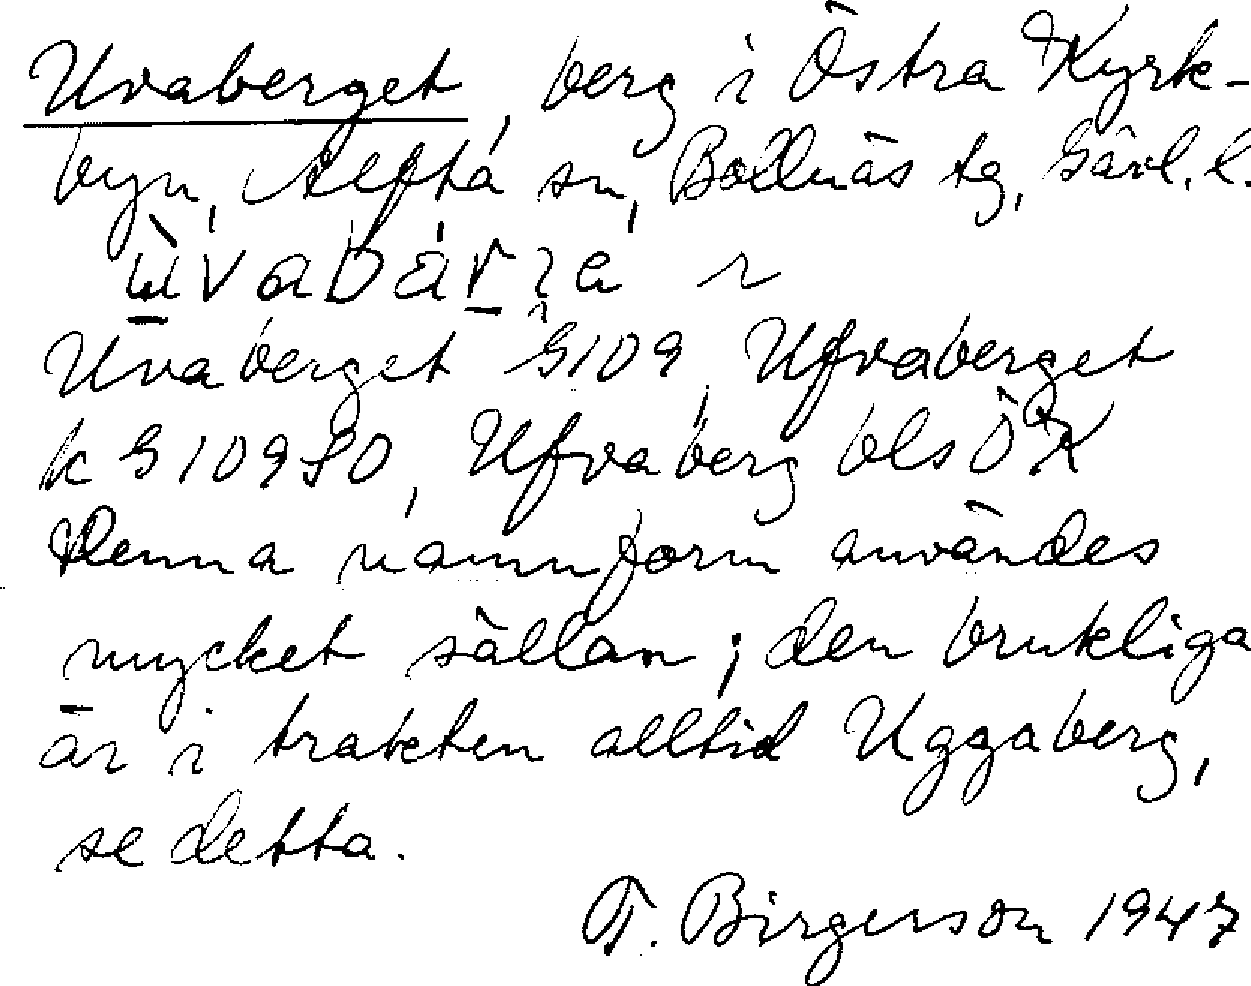 Uvaberget, berg i Östra Kyrk-
byn, Alfta sn, Bollnäs tg, Gävl. l.
Uvaberget G109, Ufvaberget
k G109 50, Ufvaberg bls ÖK
Denna namnform användes
mycket sällan; den brukliga
är i trakten alltid Uggaberg,
se detta.
F. Birgerson 1947